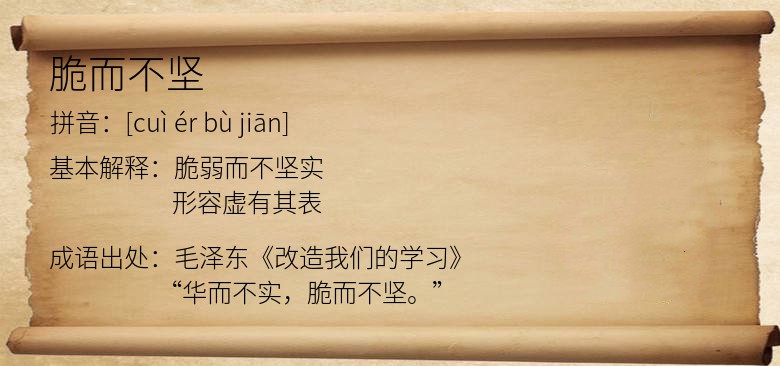 脆而不坚
拼音：[cuì ér bù jiān]
基本解释：脆弱而不坚实
形容虚有其表
成语出处：毛泽东《改造我们的学习》
“华而不实，脆而不坚。”